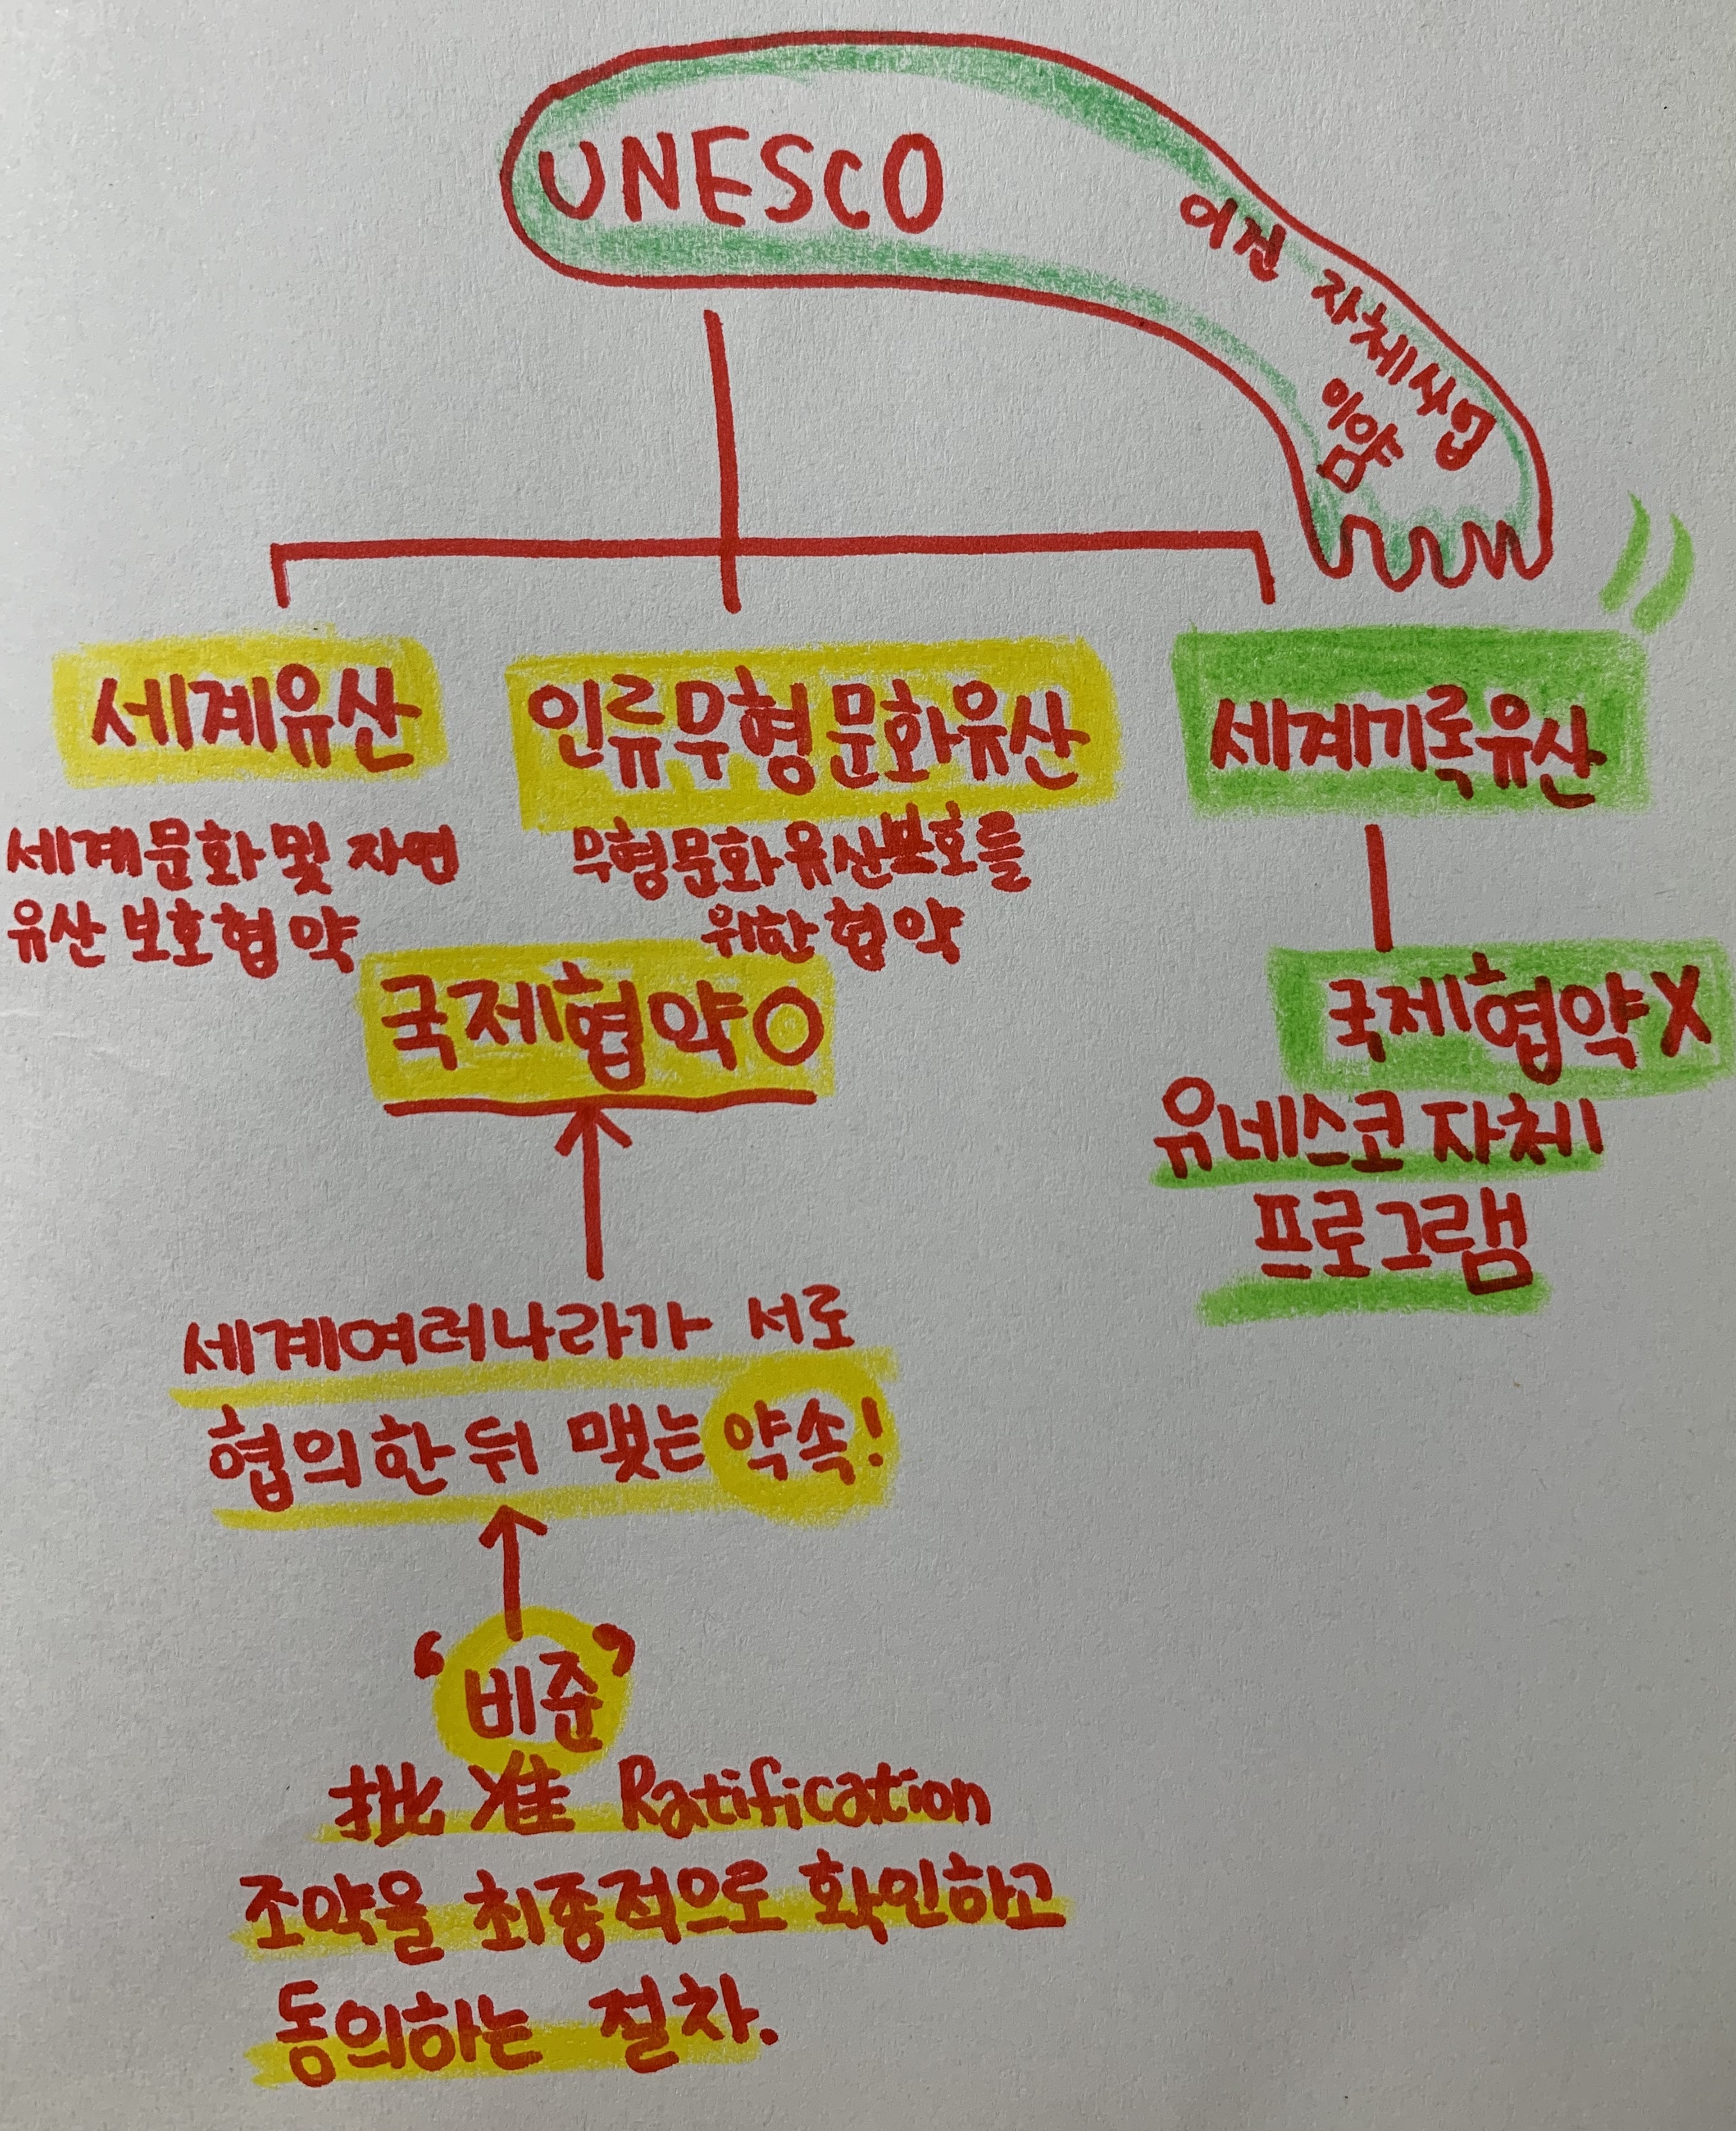 UNESCO
이건 자체사업
이얌
세계유산
인류무형문화유산
세계기록유산
세계문화 및 자연
유산 보호협약
무형문화유산보호를
위한 협약
국제협약O
국제협약X
유네스코 자체
프로그램
세계여러나라가 서로
협의한 뒤 맺는 약속!
‘비준’
批准 Ratification
조약을 최종적으로 확인하고
동의하는 절차.